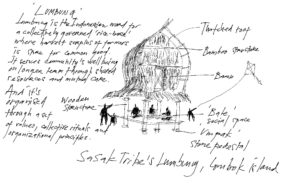 'LUMBUNG'
Lumbung is the Indonesian word for
a collectively governed rice-barn
where harvest surplus of farmers
is share for common good.
It ensures community's well being
in longer team through shared
resources and mutual care.
And it's
organised
through a set
of values, collective rituals and
organizational principles.
Wooden
structure
Thatched roof
Bamboo structure
'Bale'
social space
stone pedestal
Sasak Tribe's Lumbung, Lombok island